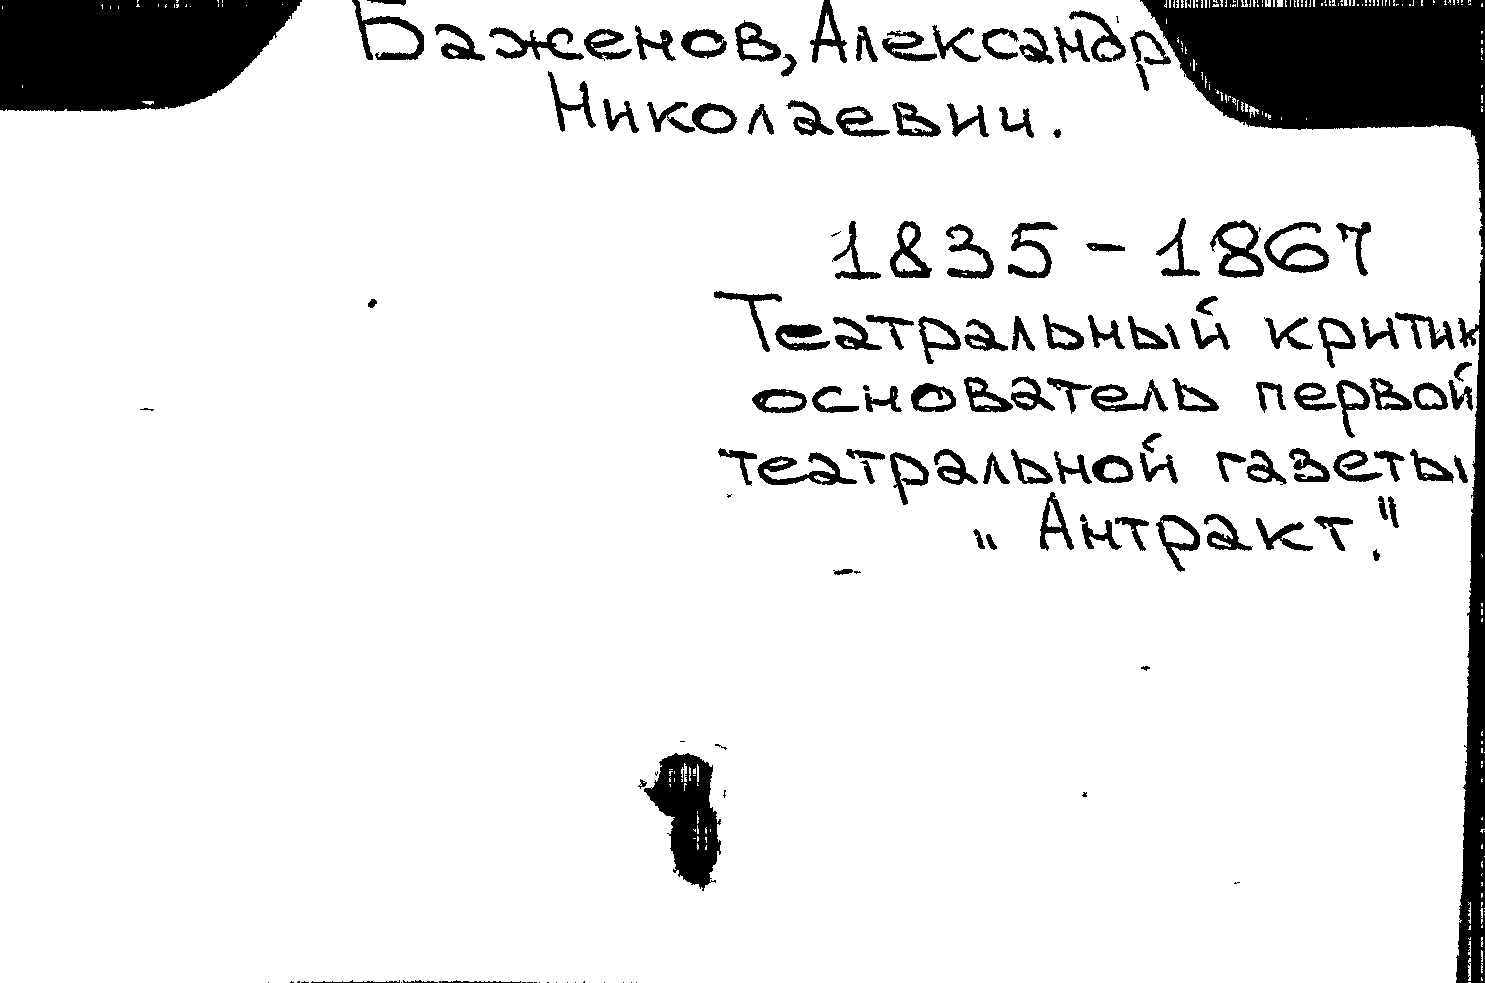 Баженов, Александр
Николаевич.
1835 - 1867
Театральный критик
основатель первой
театральной газеты
„ Антракт."